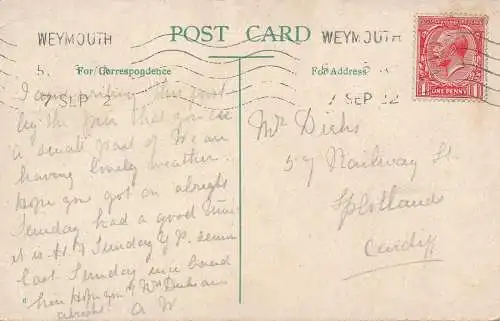 POST CARD
WEYMOUTH
WEYMOUTH
For Correspondence
For Address
7 SEP 2
7 SEP 22
ONE PENNY
I am writing this post
by the pier that you see
a small part of We are
having lovely weather.
Hope you got on alright
Sunday had a good time
it is Sunday
last Sunday
hope you & Mr
alright A W
Mr Dicks
57 Railway St.
Splotland
Cardiff